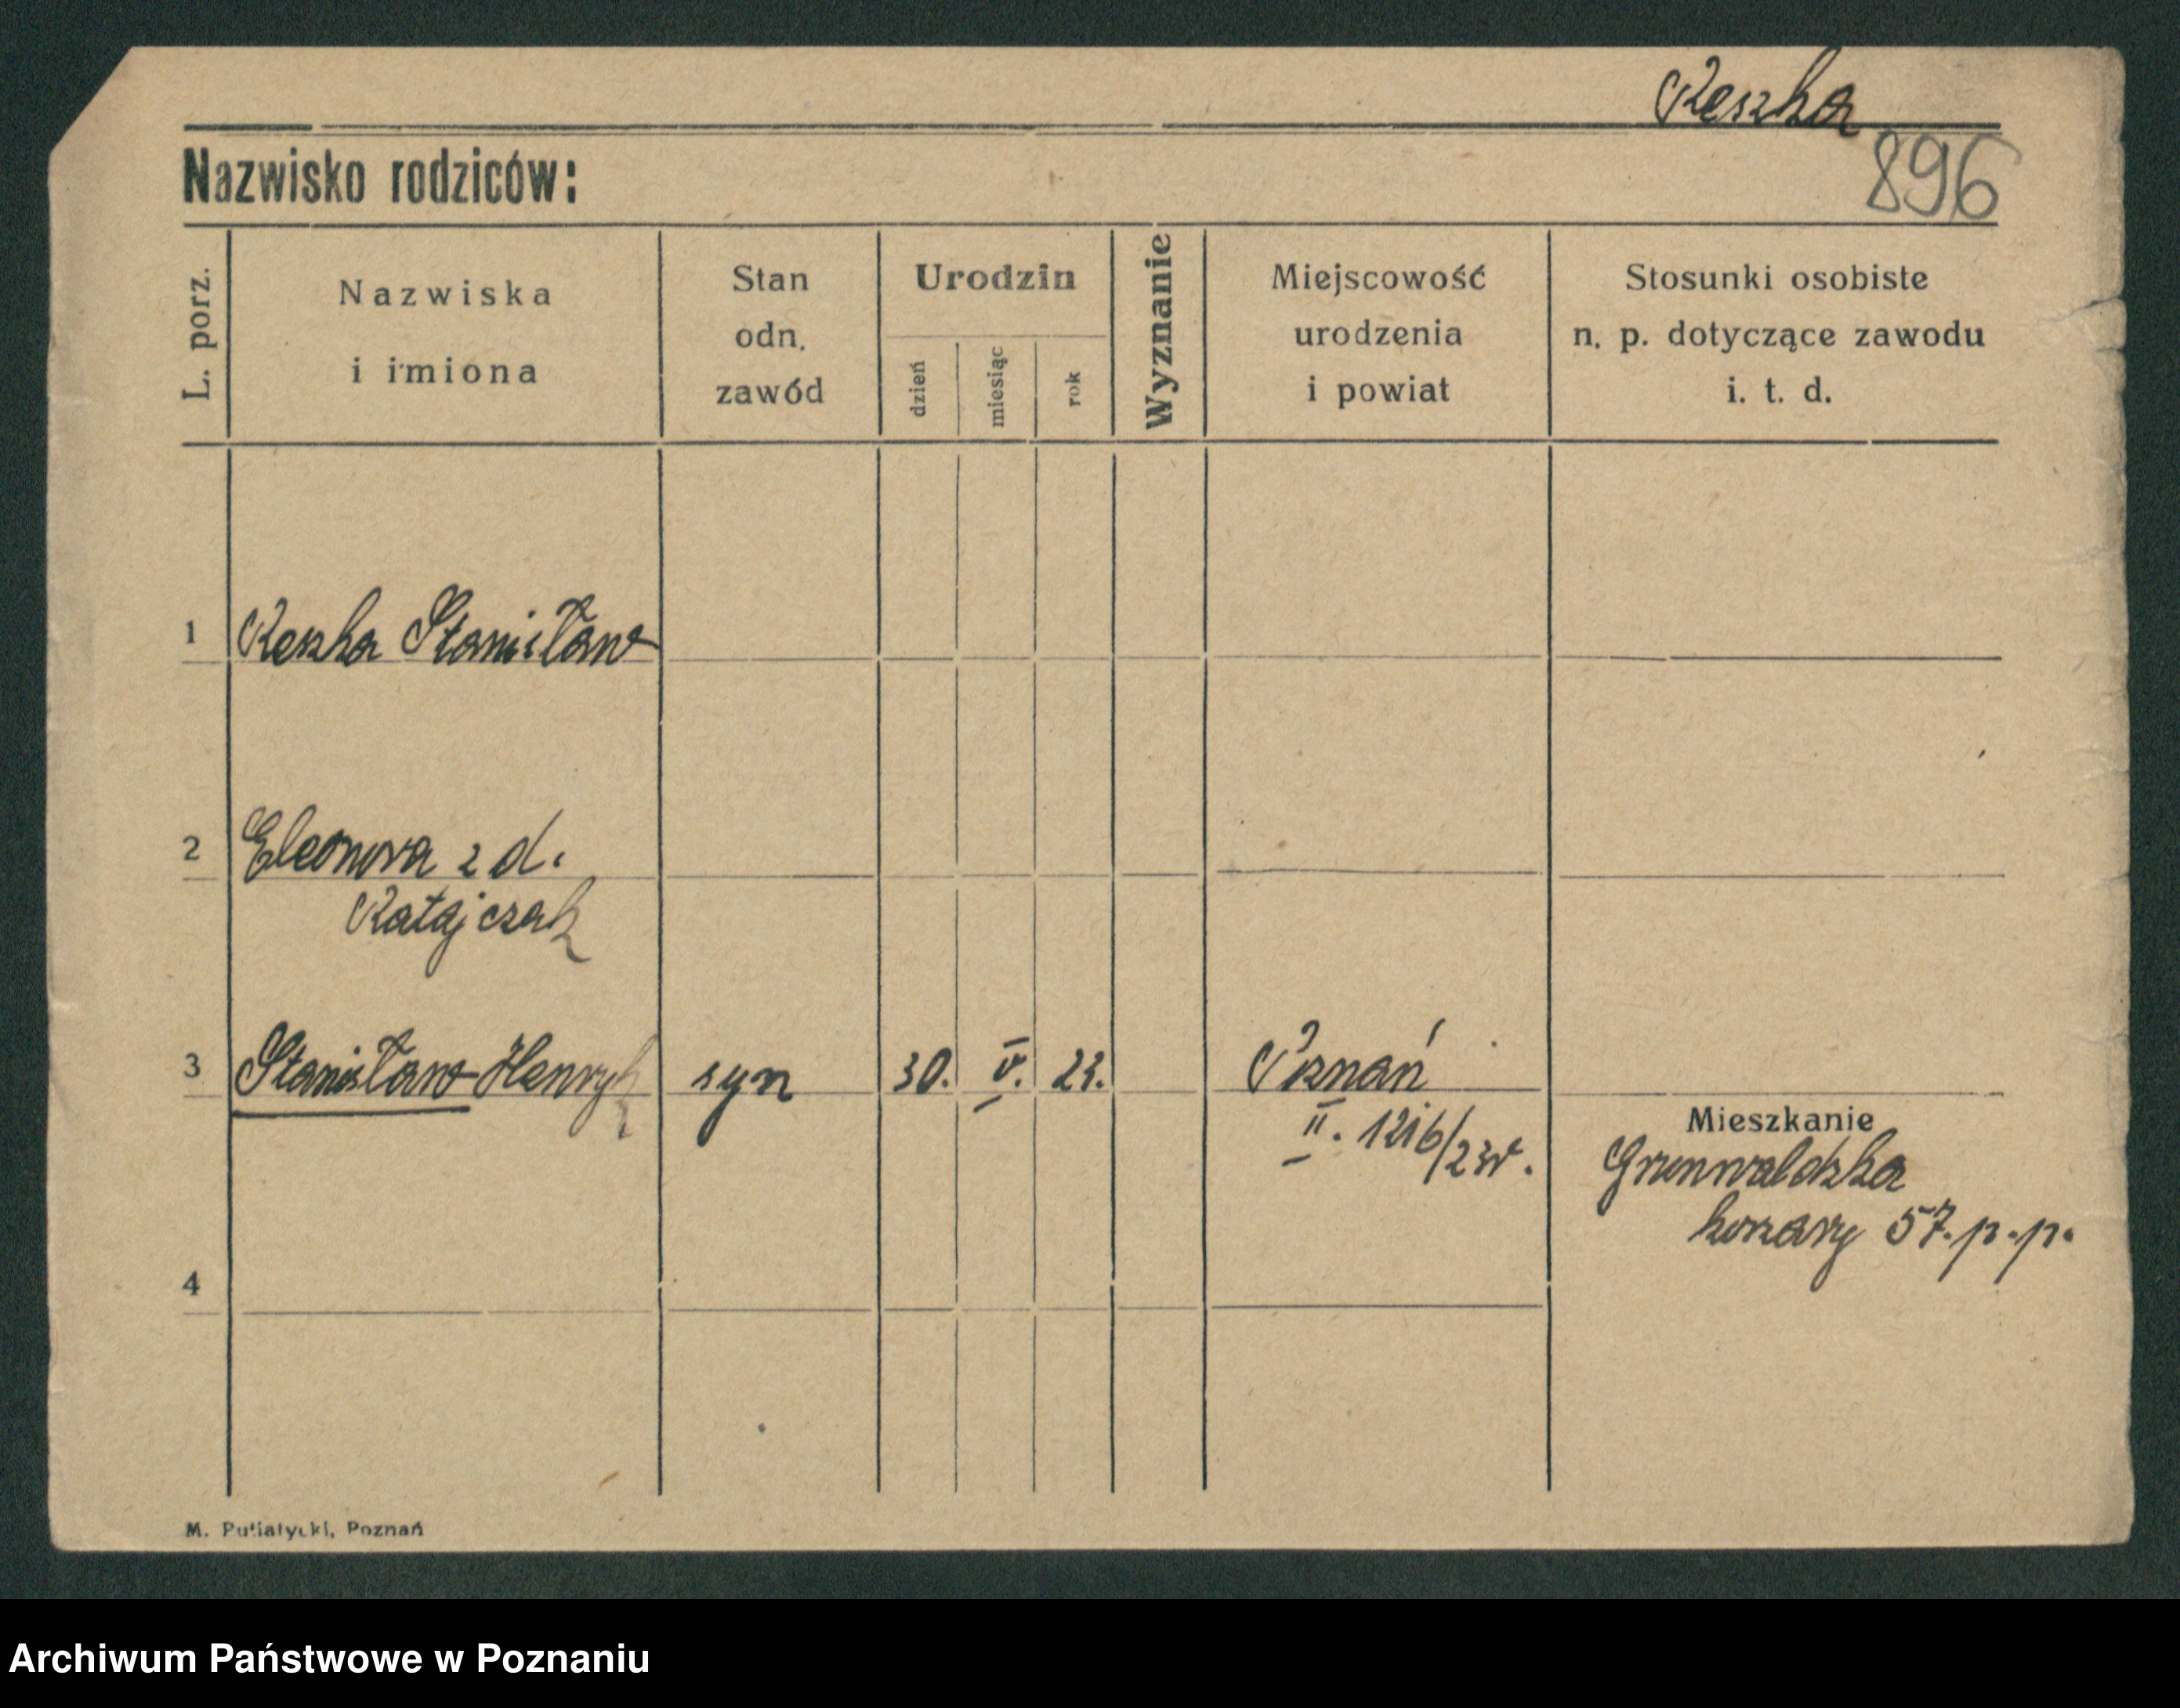 Reszka
896
Nazwisko rodziców:
L. porz.
Nazwiska
i imiona
Stan
odn.
zawód
Urodzin
dzień
miesiąc
rok
Wyznanie
Miejscowość
urodzenia
i powiat
Stosunki osobiste
n. p. dotyczące zawodu
i. t. d.
1 Reszka Stanisław
2 Eleonora z d.
Ratajczak
3 Stanisław Henryk syn 30. V. 23. Poznań
II. 1216/23r.
Mieszkanie
Grunwaldzka
koszary 57. p. p.
4
M. Putiatycki, Poznań
Archiwum Państwowe w Poznaniu